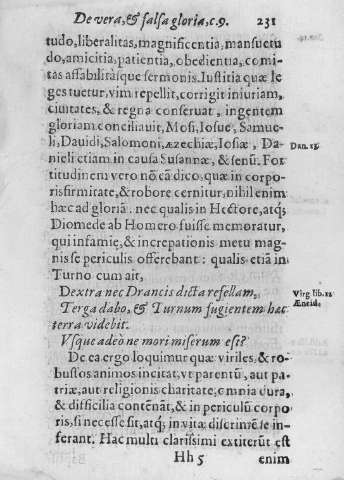 De vera, & falsa gloria, c.9. 231
tudo, liberalitas, magnificentia, mansuetu
do, amicitia, patientia, obedientia, comi-
tas affabilitásque sermonis. Iustitia quæ le
ges tuetur, vim repellit, corrigit iniuriam,
ciuitates, & regna conseruat, ingentem
gloriam conciliauit, Mosi, Iosue, Samue-
li, Dauidi, Salomoni, Æzechiæ, Iosiæ, Da-
nieli etiam in causa Susannæ, & senũ. For
Dan. 13.
titudinem vero nõ eã dico, quæ in corpo-
ris firmitate, & robore cernitur, nihil enim
hæc ad gloriã: nec qualis in Hectore, atq;
Diomede ab Homero fuisse memoratur,
qui infamię, & increpationis metu mag-
nis se periculis offerebant: qualis etiã in
Turno cum ait,
Dextra nec Drancis dicta refellam,
Virg lib. 12
Æneid.
Terga dabo, & Turnum fugientem hæc
terra videbit.
Vsque adeò ne mori miserum est?
De ea ergo loquimur quæ viriles, & ro-
bustos animos incitat, vt parentũ, aut pa-
triæ, aut religionis charitate, omnia dura,
& difficilia contẽnãt, & in periculũ corpo
ris, si necesse sit, atq; in vitæ discrimẽ se in-
ferant. Hac multi clarissimi extiterũt est
Hh 5 enim